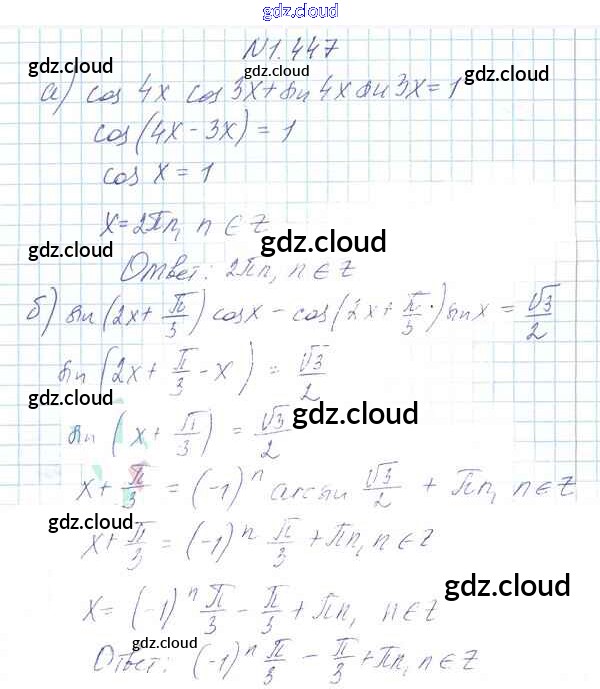 gdz.cloud
N1.447
gdz.cloud gdz.cloud
а) cos 4x cos 3x + sin 4x sin 3x = 1
gdz.cloud
cos(4x - 3x) = 1
cos x = 1
gdz.cloud
x = 2πn, n ∈ Z
gdz.cloud gdz.cloud
Ответ: 2πn, n ∈ Z
б) sin(2x + π/3) cos x - cos(2x + π/3) sin x = √3/2
sin(2x + π/3 - x) = √3/2
gdz.cloud gdz.cloud
sin(x + π/3) = √3/2
x + π/3 = (-1)ⁿ arcsin √3/2 + πn, n ∈ Z
gdz.cloud
x + π/3 = (-1)ⁿ π/3 + πn, n ∈ Z
gdz.cloud
x = (-1)ⁿ π/3 - π/3 + πn, n ∈ Z
gdz.cloud
Ответ: (-1)ⁿ π/3 - π/3 + πn, n ∈ Z